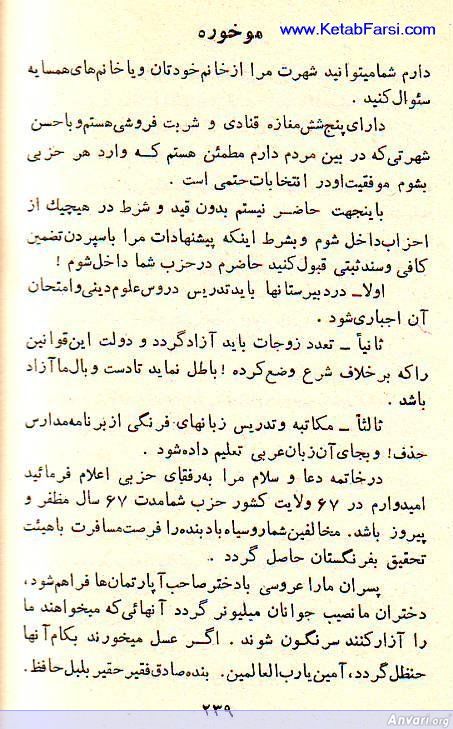 موخوره www.KetabFarsi.com
دارم شمامیتوانید شهرت مرا ازخانم خودتان ویاخانم‌های همسایه
سئوال کنید .
دارای پنج شش مغازه قنادی و شربت فروشی هستم و باحسن
شهرتی که در بین مردم دارم مطمئن هستم کـه وارد هر حزبی
بشوم موفقیت اودر انتخابات حتمی است .
باینجهت حاضـر نیستم بدون قید و شرط در هیچیك از
احزاب داخل شوم و بشرط اینکه پیشنهادات مرا باسپردن تضمین
کافی وسند ثبتی قبول کنید حاضرم درحزب شما داخل شوم !
اولاـ دردبیرستانها باید تدریس دروس علوم دینی و امتحان
آن اجباری شود .
ثانیاً ـ تعدد زوجات باید آزاد گردد و دولت این قوانین
راکه برخلاف شرع وضع کرده ! باطل نماید تادست وبال ما آزاد
باشد .
ثالثاً ـ مکاتبه وتدریس زبانهای فرنگی از برنامه مدارس
حذف! وبجای آن زبان عربی تعلیم داده شود .
درخاتمه دعا و سلام مرا به رفقای حزبی اعلام فرمائید
امیدوارم در ۶۷ ولایت کشور حزب شما مدت ۶۷ سال مظفر و
پیروز باشد. مخالفین شما روسیاه باد بنده را فرصت مسافرت باهیئت
تحقیق بفرنگستان حاصل گردد .
پسران مارا عروسی بادختر صاحب آپارتمان‌ها فراهم شود،
دختران ما نصیب جوانان میلیونر گردد آنهائی که میخواهند ما
را آزار کنند سرنگون شوند . اگـر عسل میخورند بکام آنها
حنظل گردد، آمین یارب العالمین. بنده صادق فقیر حقیر بلبل حافظ.
۲۳۹
Anvari.org